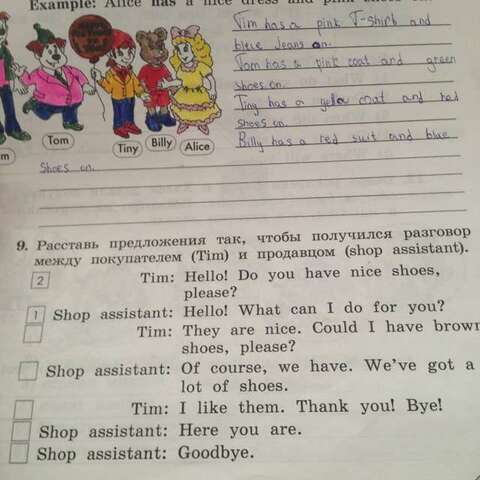 Example: Alice has a nice dress and pink shoes on.
Tim has a pink T-shirt and
blue Jeans on.
Tom has a pink coat and green
shoes on.
Tiny has a coat and red
shoes on.
Billy has a red suit and blue
shoes on.
Tom
Tiny
Billy
Alice
9. Расставь предложения так, чтобы получился разговор
между покупателем (Tim) и продавцом (shop assistant).
2 Tim: Hello! Do you have nice shoes,
please?
1 Shop assistant: Hello! What can I do for you?
Tim: They are nice. Could I have brown
shoes, please?
Shop assistant: Of course, we have. We've got a
lot of shoes.
Tim: I like them. Thank you! Bye!
Shop assistant: Here you are.
Shop assistant: Goodbye.